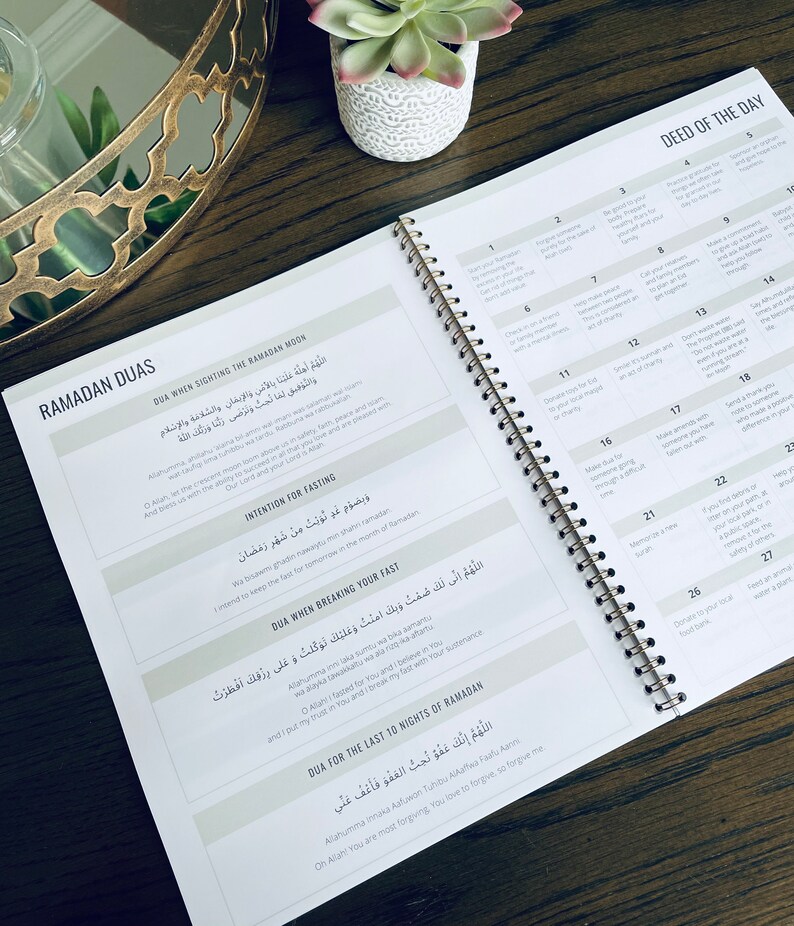 RAMADAN DUAS
DUA WHEN SIGHTING THE RAMADAN MOON
اللَّهُمَّ أَهِلَّهُ عَلَيْنَا بِالأَمْنِ وَالإِيمَانِ وَالسَّلَامَةِ وَالإِسْلَامِ
وَالتَّوْفِيقِ لِمَا تُحِبُّ وَتَرْضَى رَبُّنَا وَرَبُّكَ اللَّهُ
Allahumma, ahillahu 'alaina bil-amni wal-imani was salamati wal-Islami
wat taufiqi lima tuhibbu wa tardu. Rabbuna wa rabbukallah.
O Allah, let the crescent moon loom above us in safety, faith, peace and Islam.
And bless us with the ability to succeed in all that you love and are pleased with.
Our Lord and your Lord is Allah.
INTENTION FOR FASTING
وَبِصَوْمِ غَدٍ نَّوَيْتُ مِنْ شَهْرِ رَمَضَانَ
Wa bisawmi ghadin nawaytu min shahri ramadan.
I intend to keep the fast for tomorrow in the month of Ramadan.
DUA WHEN BREAKING YOUR FAST
اللَّهُمَّ اِنِّى لَكَ صُمْتُ وَبِكَ امَنْتُ وَعَلَيْكَ تَوَكَّلْتُ وَ عَلى رِزْقِكَ اَفْطَرْتُ
Allahumma inni laka sumtu wa bika aamantu
wa alayka tawakkaltu wa ala rizq-ika-aftartu.
O Allah! I fasted for You and I believe in You
and I put my trust in You and I break my fast with Your sustenance.
DUA FOR THE LAST 10 NIGHTS OF RAMADAN
اللَّهُمَّ إِنَّكَ عَفُوٌّ تُحِبُّ العَفْوَ فَأَعْفُ عَنِّي
Allahumma Innaka Aafuwon Tuhibu AlAaffwa Faafu Aanni.
Oh Allah! You are most forgiving. You love to forgive, so forgive me.
DEED OF THE DAY
1
Start your Ramadan
by removing the
excess in your life.
Get rid of things that
don't add value.
2
Forgive someone
purely for the sake of
Allah (swt).
3
Be good to your
body. Prepare
healthy iftars for
yourself and your
family.
4
Practice gratitude for
things we often take
for granted in our
day-to-day lives.
5
Sponsor an orphan
and give hope to the
hopeless.
6
Check in on a friend
or family member
with a mental illness.
7
Help make peace
between two people.
This is considered an
act of charity.
8
Call your relatives
and family members
to plan an Eid
get together.
9
Make a commitment
to give up a bad habit
and ask Allah (swt) to
help you follow
through.
10
11
Donate toys for Eid
to your local masjid
or charity.
12
Smile! It's sunnah and
an act of charity.
13
Don't waste water.
The Prophet (PBUH) said
"Do not waste water
even if you are at a
running stream."
14
Say Alhumdulilla
times and refle
the blessings
life.
16
Make dua for
someone going
through a difficult
time.
17
Make amends with
someone you have
fallen out with.
18
Send a thank you
note to someone
who made a positive
difference in your l
21
Memorize a new
surah.
22
If you find debris or
litter on your path, at
your local park, or in
a public space,
remove it for the
safety of others.
23
Help yo
aroun
26
Donate to your local
food bank.
27
Feed an animal
water a plant.